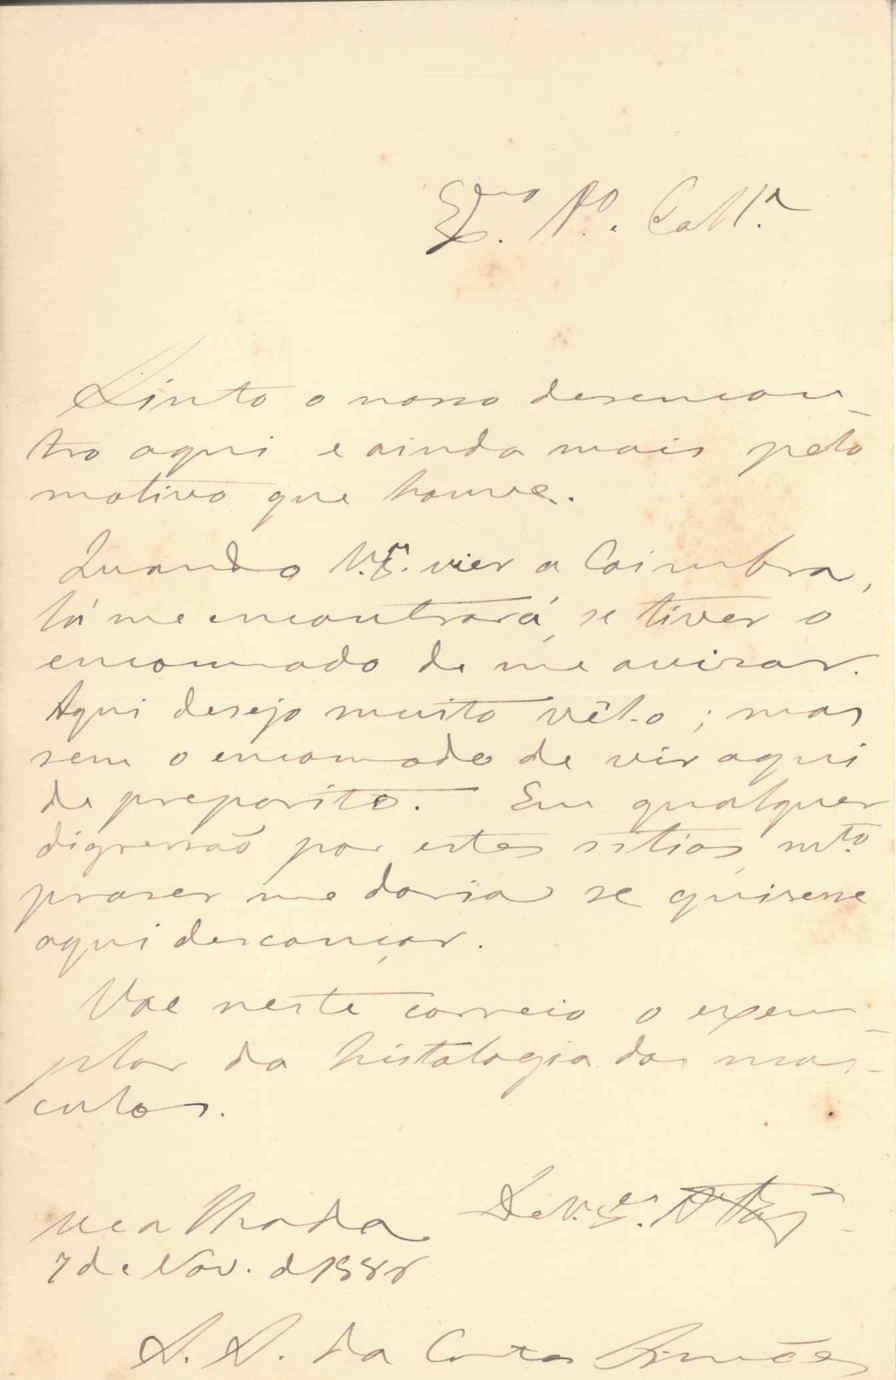 Ex.mo A.o e Coll.a
Sinto o nosso desencon-
tro aqui e ainda mais pelo
motivo que houve.
Quando V. Ex.a vier a Coimbra,
lá me encontrará, se tiver o
encommodo de me avizar.
Aqui desejo muito vêl-o; mas
sem o encommodo de vir aqui
de preposito. Em qualquer
digressão por estes sitios m.to
praser me daria se quisesse
aqui descançar.
Vae neste correio o exem-
plar da histologia dos mus-
culos.
Mealhada De V. Ex.a
7 de Nov. d 1888
A. A. da Costa Simões